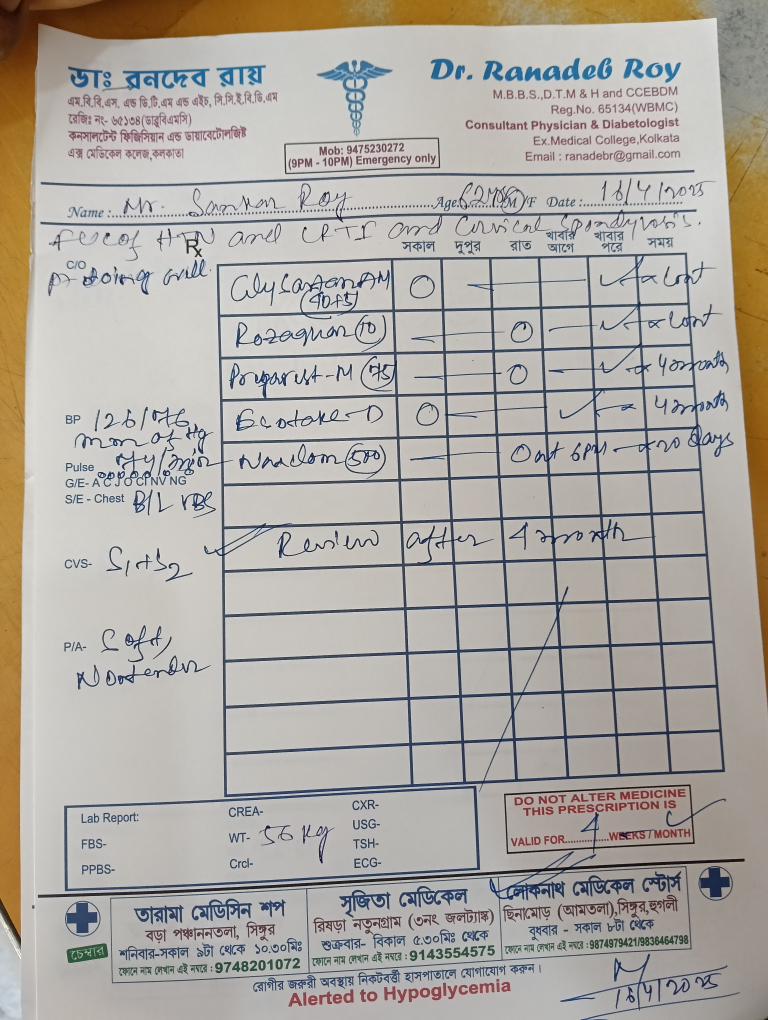 ডাঃ রনদেব রায়
এম.বি.বি.এস, এন্ড ডি.টি.এম এন্ড এইচ, সি.সি.ই.বি.ডি.এম
রেজিঃ নং- ৬৫১৩৪(ডাব্লুবিএমসি)
কনসালটেন্ট ফিজিসিয়ান এন্ড ডায়াবেটোলজিষ্ট
এক্স মেডিকেল কলেজ,কলকাতা
Mob: 9475230272
(9PM - 10PM) Emergency only
Dr. Ranadeb Roy
M.B.B.S.,D.T.M & H and CCEBDM
Reg.No. 65134(WBMC)
Consultant Physician & Diabetologist
Ex.Medical College,Kolkata
Email : ranadebr@gmail.com
Name : Mr. Sankar Roy Age 62 M/F Date : 16/4/2025
HTN and and Cervical Spondylosis.
Rx
সকাল দুপুর রাত খাবার আগে খাবার পরে সময়
C/O
Pt doing well.
AM (40+5) O — — ✓ x Cont
(10) — O — ✓ x Cont
-M (75) — O — ✓ x 4 month
-D O — ✓ x 4 month
(500) — O at 6PM — x 20 days
BP 126/76
mm of Hg
Pulse 74/min
G/E- A C J O CI NV NG
S/E - Chest B/L VBS
✓ Review after 4 month
CVS- S1+S2
P/A- Soft,
Nontender
Lab Report:
FBS-
PPBS-
CREA-
WT- 56 kg
Crcl-
CXR-
USG-
TSH-
ECG-
DO NOT ALTER MEDICINE
THIS PRESCRIPTION IS
VALID FOR 4 WEEKS / MONTH
চেম্বার
তারামা মেডিসিন শপ
বড়া পঞ্চাননতলা, সিঙ্গুর
শনিবার-সকাল ৯টা থেকে ১০.৩০মিঃ
ফোনে নাম লেখান এই নম্বরে : 9748201072
সৃজিতা মেডিকেল
রিষড়া নতুনগ্রাম (৩নং জলট্যাঙ্ক)
শুক্রবার- বিকাল ৫.৩০মিঃ থেকে
ফোনে নাম লেখান এই নম্বরে : 9143554575
লোকনাথ মেডিকেল স্টোর্স
ছিনামোড় (আমতলা),সিঙ্গুর,হুগলী
বুধবার - সকাল ৮টা থেকে
ফোনে নাম লেখান এই নম্বরে : 9874979421/9836464798
রোগীর জরুরী অবস্থায় নিকটবর্তী হাসপাতালে যোগাযোগ করুন।
Alerted to Hypoglycemia
16/4/2025